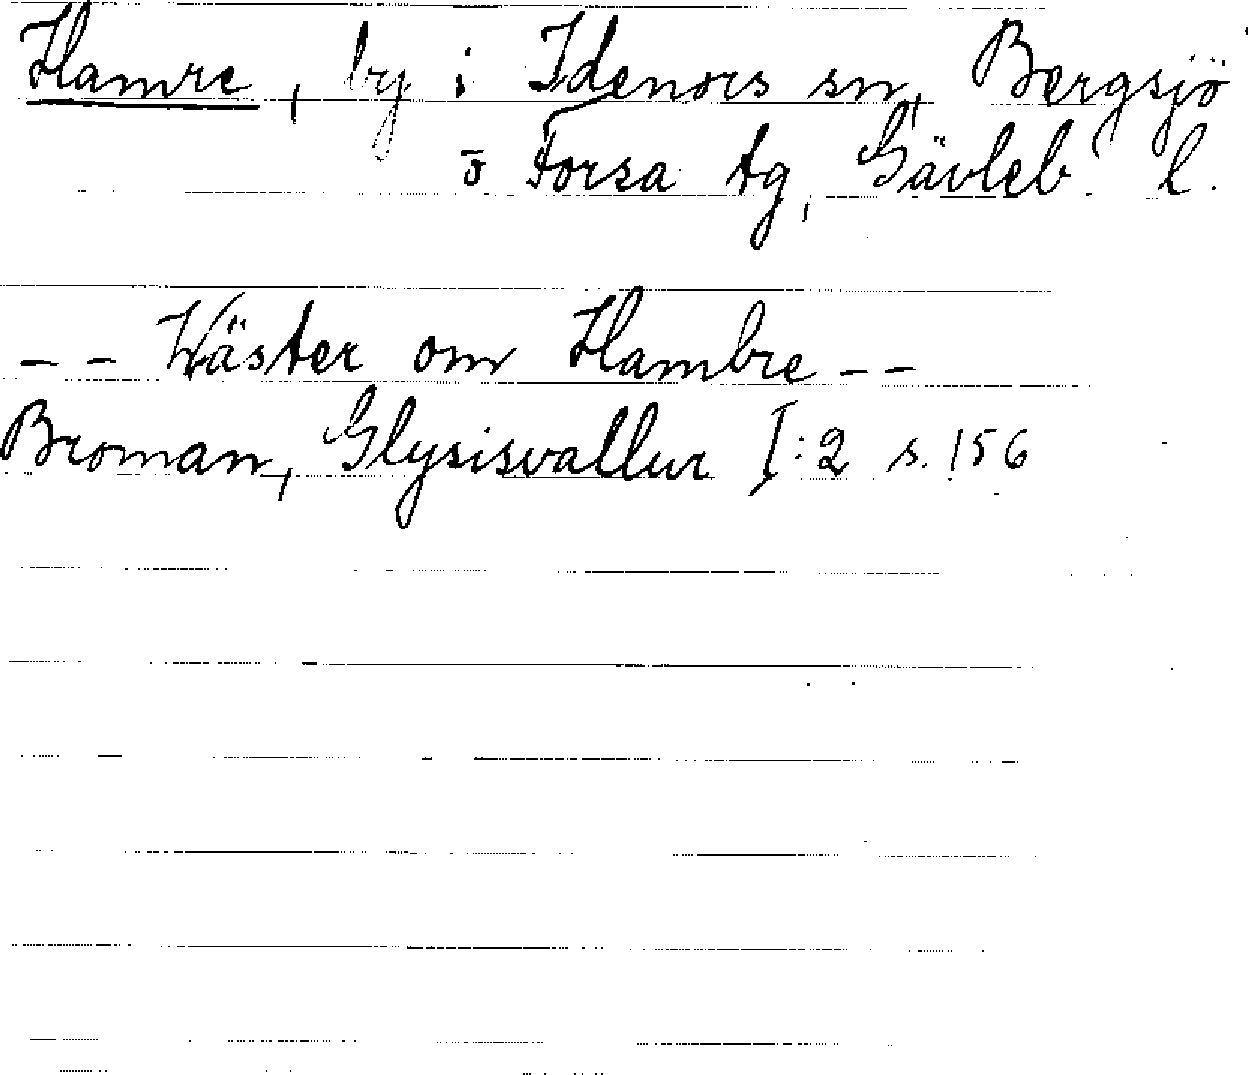 Hamre, by i Idenors sn, Bergsjö
o Forsa tg, Gävleb. l.
-- Wäster om Hambre --
Broman, Glysisvallur I:2 s. 156